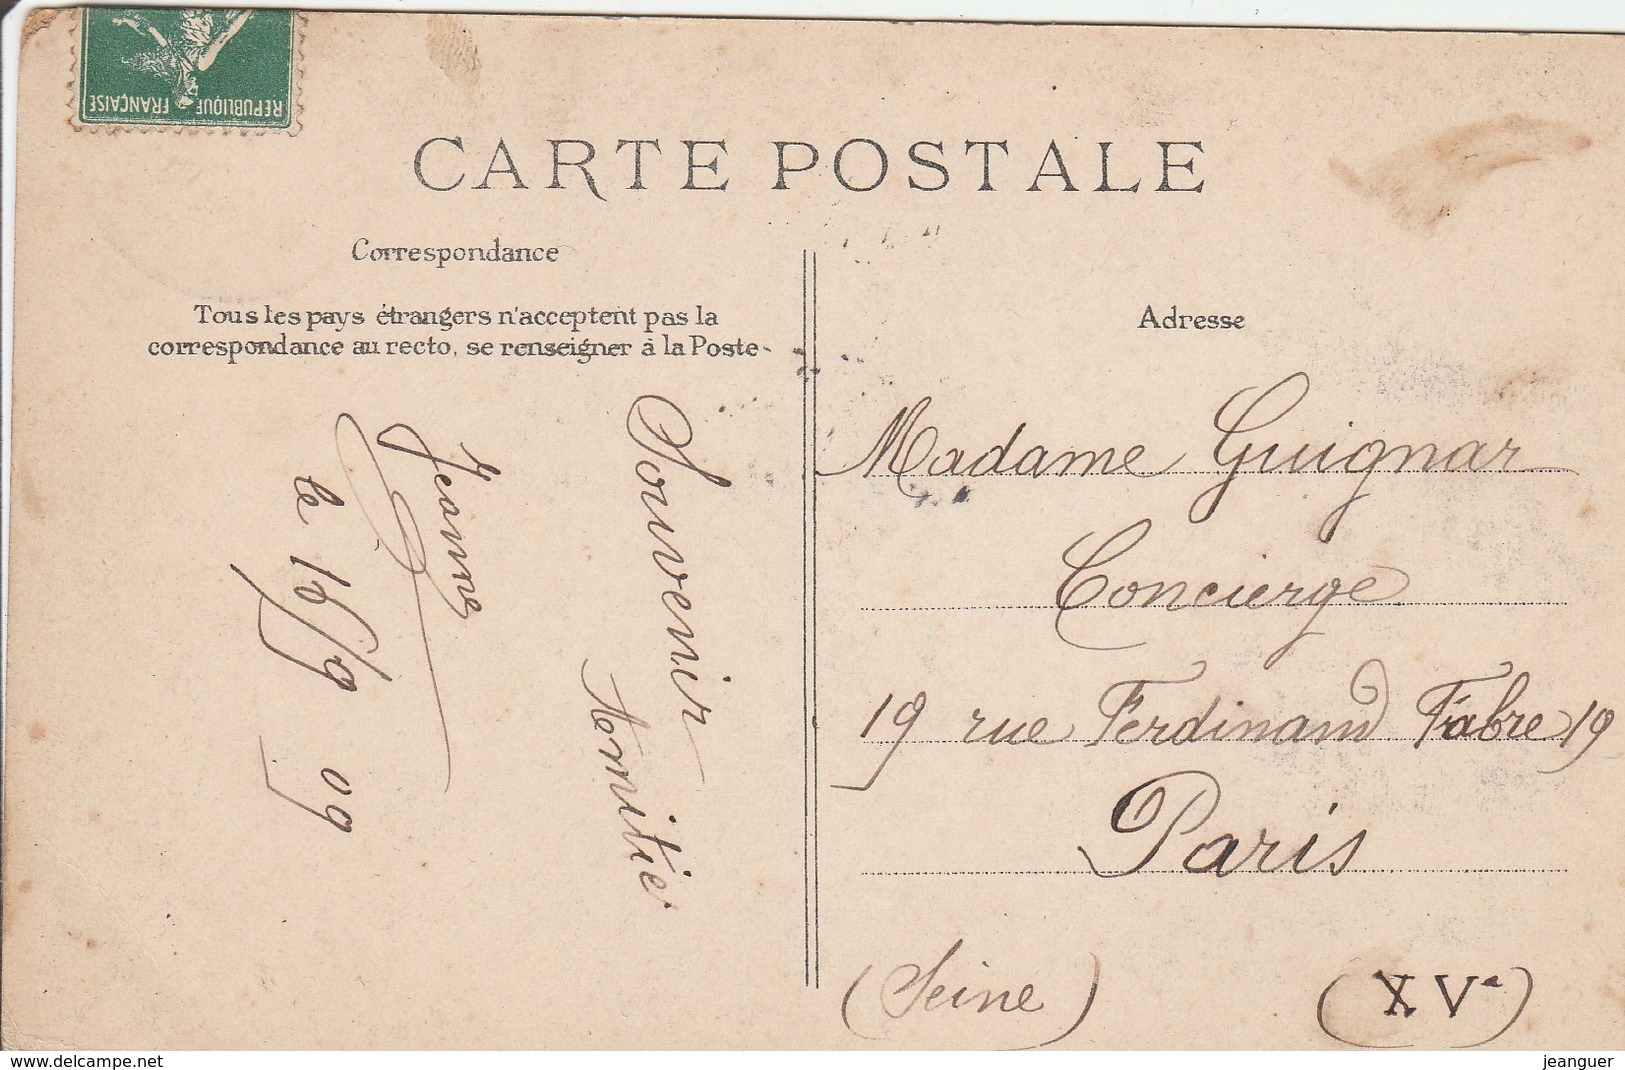 REPUBLIQUE FRANÇAISE
CARTE POSTALE
Correspondance
Tous les pays étrangers n'acceptent pas la
correspondance au recto, se renseigner à la Poste
Adresse
Souvenir
Amitié
Jeanne
le 16/9 09
Madame Guignar
Concierge
19 rue Ferdinand Fabre 19
Paris
(Seine) (XVe)
www.delcampe.net
jeanguer